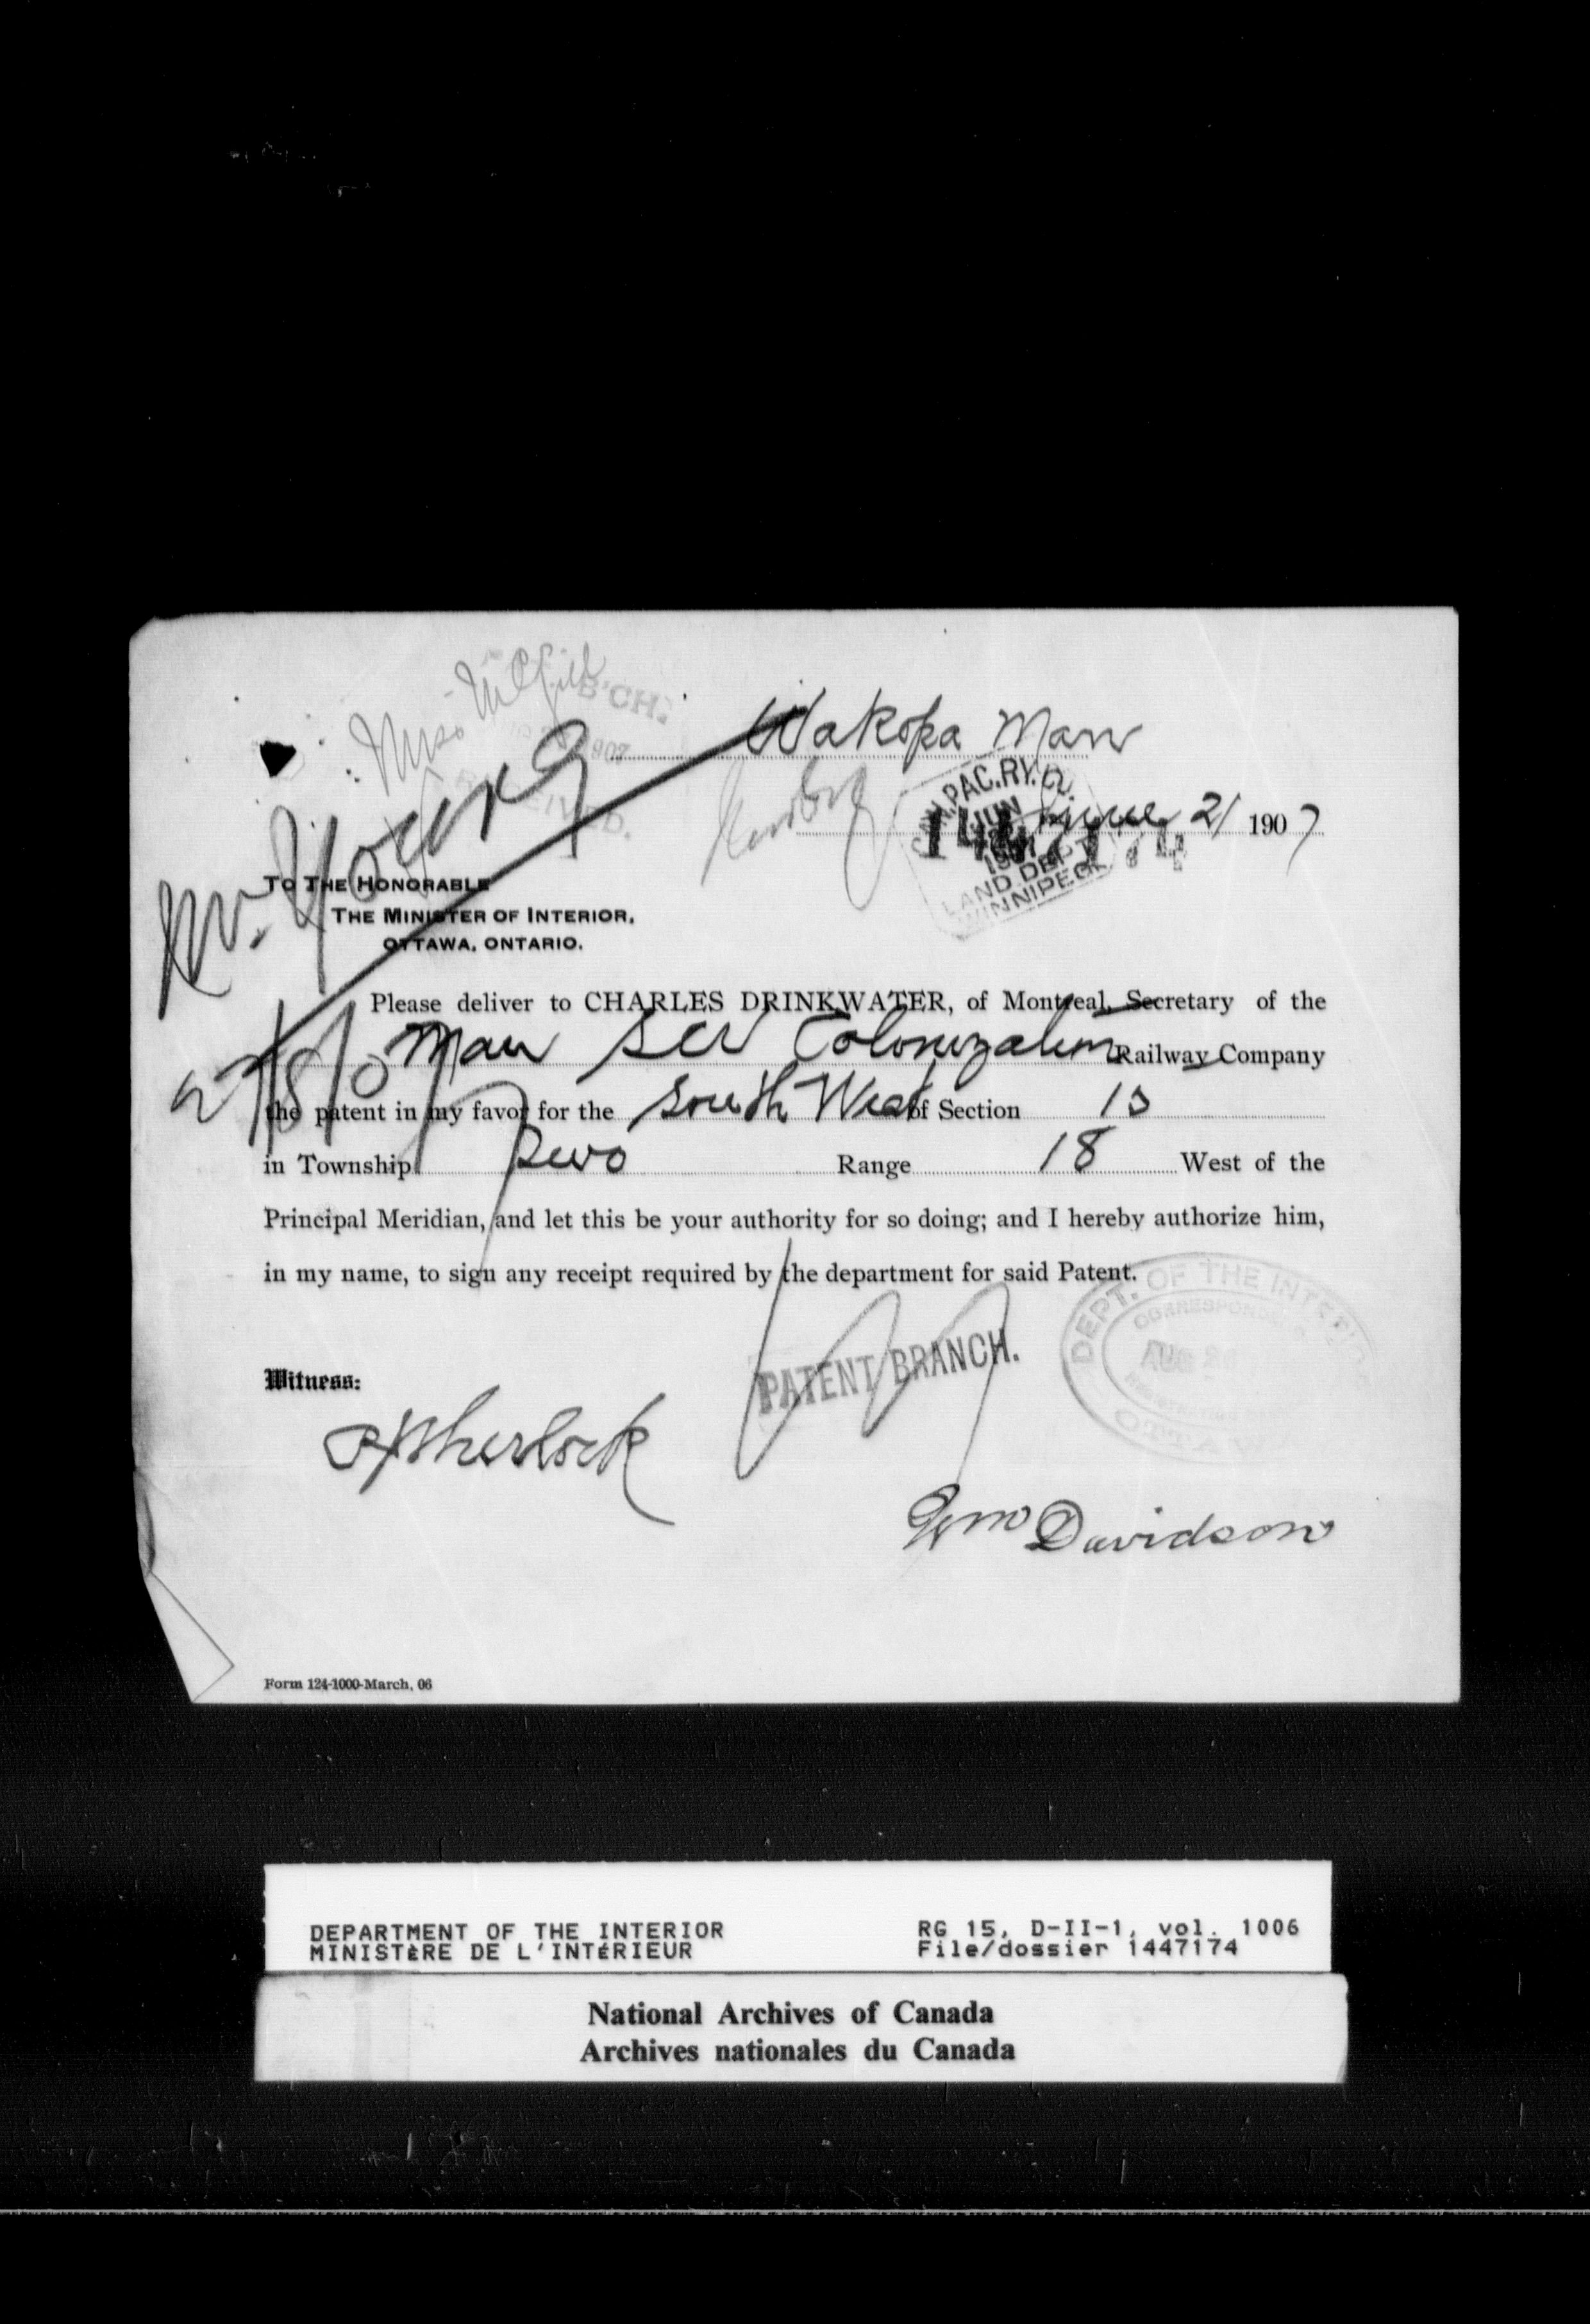 Miss McGill
B'CH.
RECEIVED.
Wakopa Man
Mr. Young
CAN. PAC. RY. Co.
JUN
LAND DEPT
WINNIPEG
1447174
June 21 1907
TO THE HONORABLE
THE MINISTER OF INTERIOR,
OTTAWA, ONTARIO.
Please deliver to CHARLES DRINKWATER, of Montreal, Secretary of the
Man Colonization Railway Company
the patent in my favor for the South West of Section
in Township Two Range 18 West of the
Principal Meridian, and let this be your authority for so doing; and I hereby authorize him,
in my name, to sign any receipt required by the department for said Patent.
PATENT BRANCH.
DEPT. OF THE INTERIOR
AUG 26
OTTAWA
Witness:
Sherlock
Wm Davidson
Form 124-1000-March, 06
DEPARTMENT OF THE INTERIOR RG 15, D-II-1, vol. 1006
MINISTÈRE DE L'INTÉRIEUR File/dossier 1447174
National Archives of Canada
Archives nationales du Canada